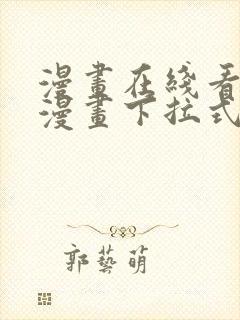 漫畫在綫看
漫畫下拉式
郭藝萌